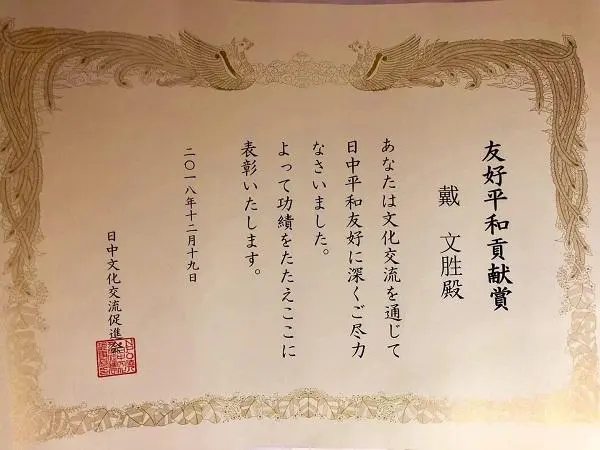 友好平和貢献賞
戴 文胜殿
あなたは文化交流を通じて
日中平和友好に深くご尽力
なさいました。
よって功績をたたえここに
表彰いたします。
二〇一八年十二月十九日
日中文化交流促進